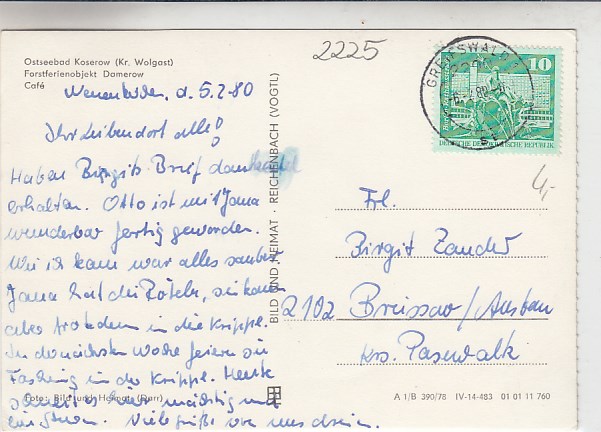 Ostseebad Koserow (Kr. Wolgast)
Forstferienobjekt Damerow
Café
d. 5.2.80
Ihr Lieben dort alle!
Haben Birgits Brief dankend
erhalten. Otto ist mit Jana
wunderbar fertig geworden.
Wie ich kam war alles sauber.
Jana hat die Röteln, sie kann
aber trotzdem in die Krippe.
In der nächsten Woche feiern sie
Fasching in der Krippe. Heute
schneit es hier mächtig und
ein Sturm. Viele Grüße von uns drein.
Foto: Bild und Heimat (Darr)
BILD UND HEIMAT · REICHENBACH (VOGTL)
2225
GREIFSWALD
10
DEUTSCHE DEMOKRATISCHE REPUBLIK
4,-
Frl.
Birgit Zander
2102 Breissow/Ausbau
Krs. Pasewalk
A 1/B 390/78 IV-14-483 01 01 11 760